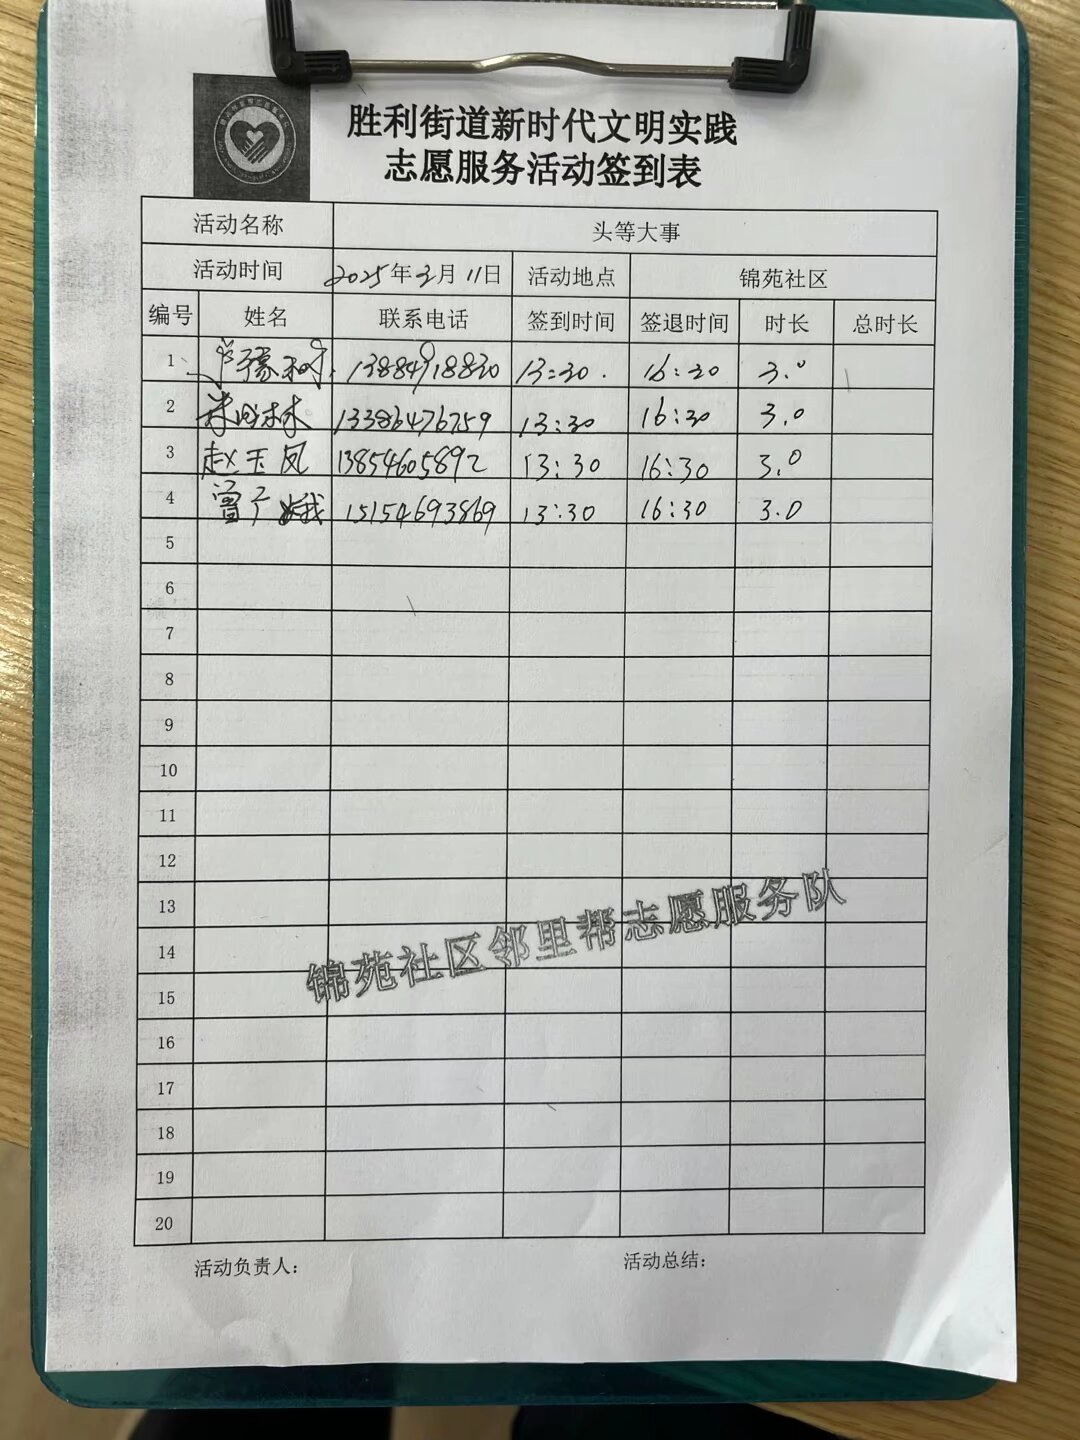 胜利街道新时代文明实践
志愿服务活动签到表
活动名称 头等大事
活动时间 2025年3月11日 活动地点 锦苑社区
编号 姓名 联系电话 签到时间 签退时间 时长 总时长
1 13884918830 13:30. 16:30 3.0
2 13386476759 13:30 16:30 3.0
3 赵玉凤 13854605892 13:30 16:30 3.0
4 曾广娥 15154693869 13:30 16:30 3.0
5
6
7
8
9
10
11
12
13
14
锦苑社区邻里帮志愿服务队
15
16
17
18
19
20
活动负责人： 活动总结：